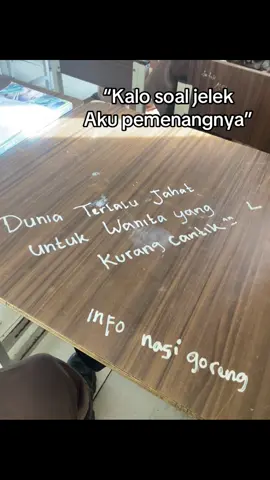 “Kalo soal jelek
Aku pemenangnya”
Dunia Terlalu Jahat
untuk Wanita yang
Kurang cantik
info nasi goreng